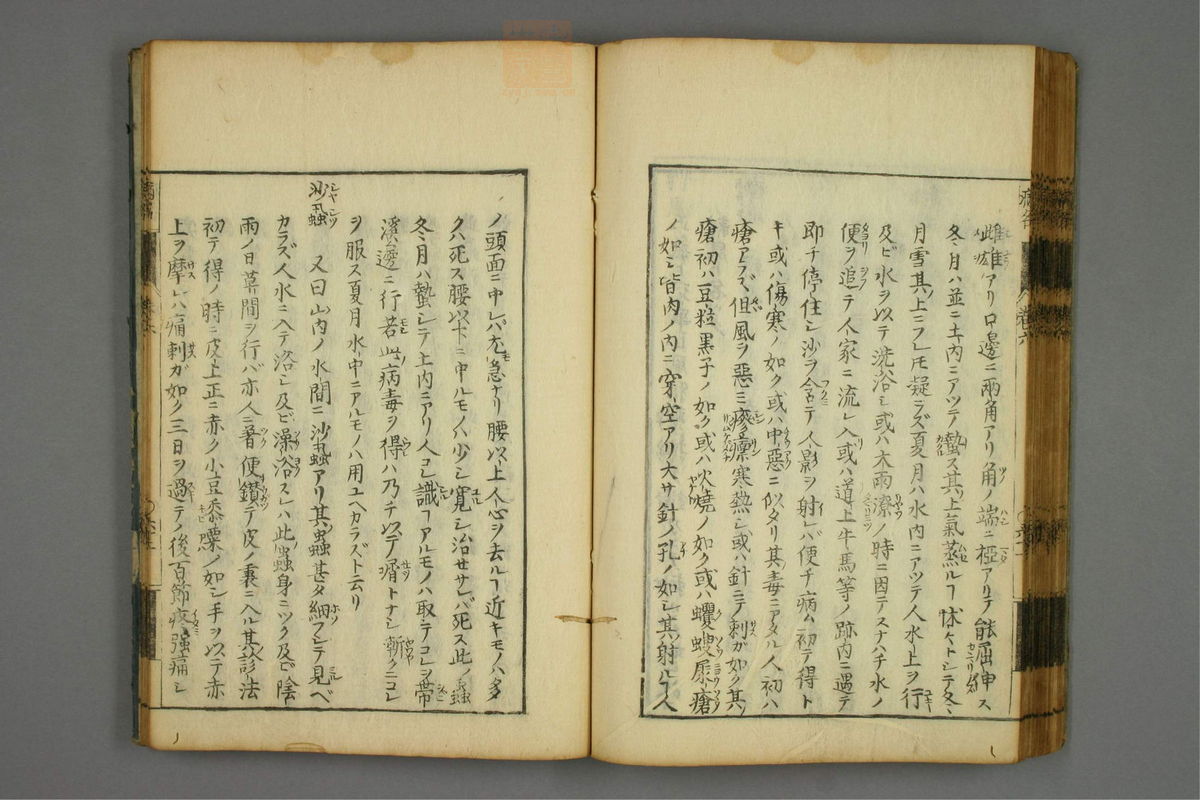 雌雄アリ口邊ニ兩角アリ角ノ端ニ椏アリテ能屈伸ス
冬月ハ並ニ土内ニアツテ蟄ス其上氣蒸ルヿ休々トシテ冬
月雪其上ニフレモ凝ラズ夏月ハ水内ニアツテ人水上ヲ行
及ビ水ヲ以テ洗浴シ或ハ大雨潦ノ時ニ因テスナハチ水ノ
便ヲ追テ人家ニ流レ入或ハ道上牛馬等ノ跡内ニ遇テ
即チ停住シ沙ヲ含テ人影ヲ射レバ便チ病ム初テ得ト
キ或ハ傷寒ノ如ク或ハ中惡ニ似タリ其毒ニアタル人初ハ
瘡アラズ但風ヲ惡ミ㾕凜寒熱シ或ハ針ニテ刺ガ如ク其
瘡初ハ豆粒黒子ノ如ク或ハ火燒ノ如ク或ハ蠼螋尿瘡
ノ如シ皆肉ノ内ニ穿空アリ大サ針ノ孔ノ如シ其射ル人
ノ頭面ニ中レバ尤急ナリ腰以上人心ヲ去ルヿ近キモノハ多
クハ死ス腰以下ニ中ルモノハ少シ寛シ治セサレバ死ス此ノ蟲
冬月ハ蟄シテ土内ニアリ人コレ識ヿアルモノハ取テコレヲ帶
溪邊ニ行若此病毒ヲ得ハ乃チ以テ屑トナシ漸クニコレ
ヲ服ス夏月水中ニアルモノハ用ユヘカラズト云リ
沙蝨 又曰山内ノ水間ニ沙蝨アリ其蟲甚タ細フシテ見ベ
カラズ人水ニ入テ浴シ及ビ澡浴スレハ此蟲身ニツク及ビ陰
雨ノ日草間ヲ行バ亦人ニ著便鑽テ皮ノ裏ニ入ル其診法
初テ得ノ時ニ皮上正ニ赤ク小豆黍粟ノ如シ手ヲ以テ赤
上ヲ摩レハ痛刺ガ如ク三日ヲ過テノ後百節疼强痛シ